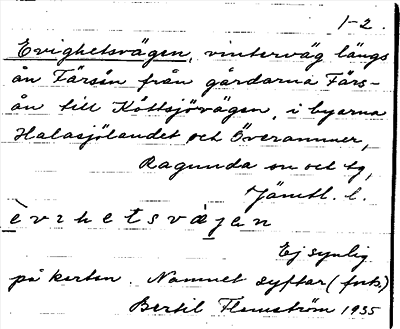 1-2.
Evighetsvägen, vinterväg längs
ån Färsån från gårdarna Färs-
ån till Köttsjövägen, i byarna
Halasjölandet och Överammer,
Ragunda sn och tg,
Jämtl. l.
Ej synlig
på kartan. Namnet syftar (forts.)
Bertil Flemström 1935